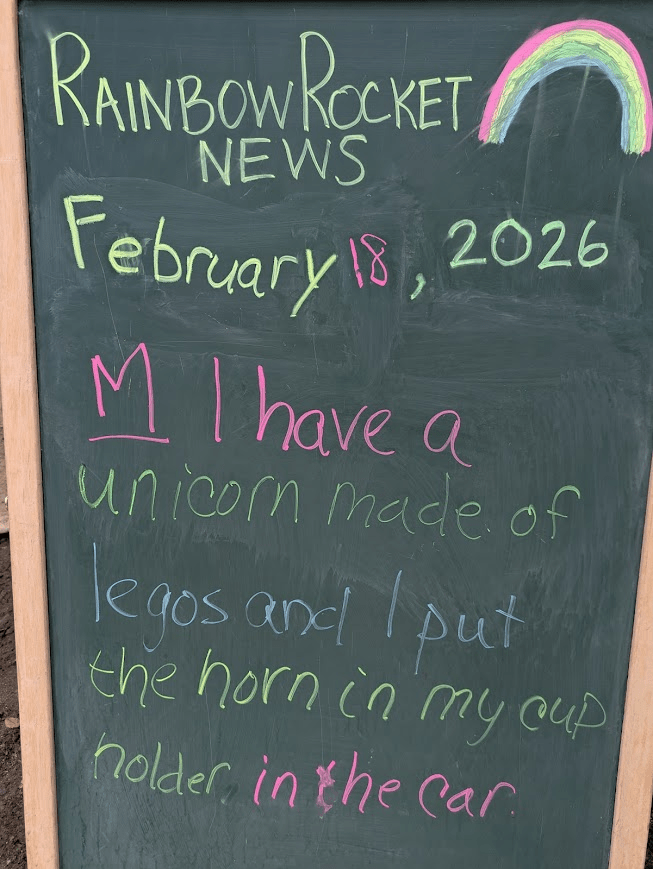 RAINBOW ROCKET
NEWS
February 18, 2026
M I have a
unicorn made of
legos and I put
the horn in my cup
holder in the car.